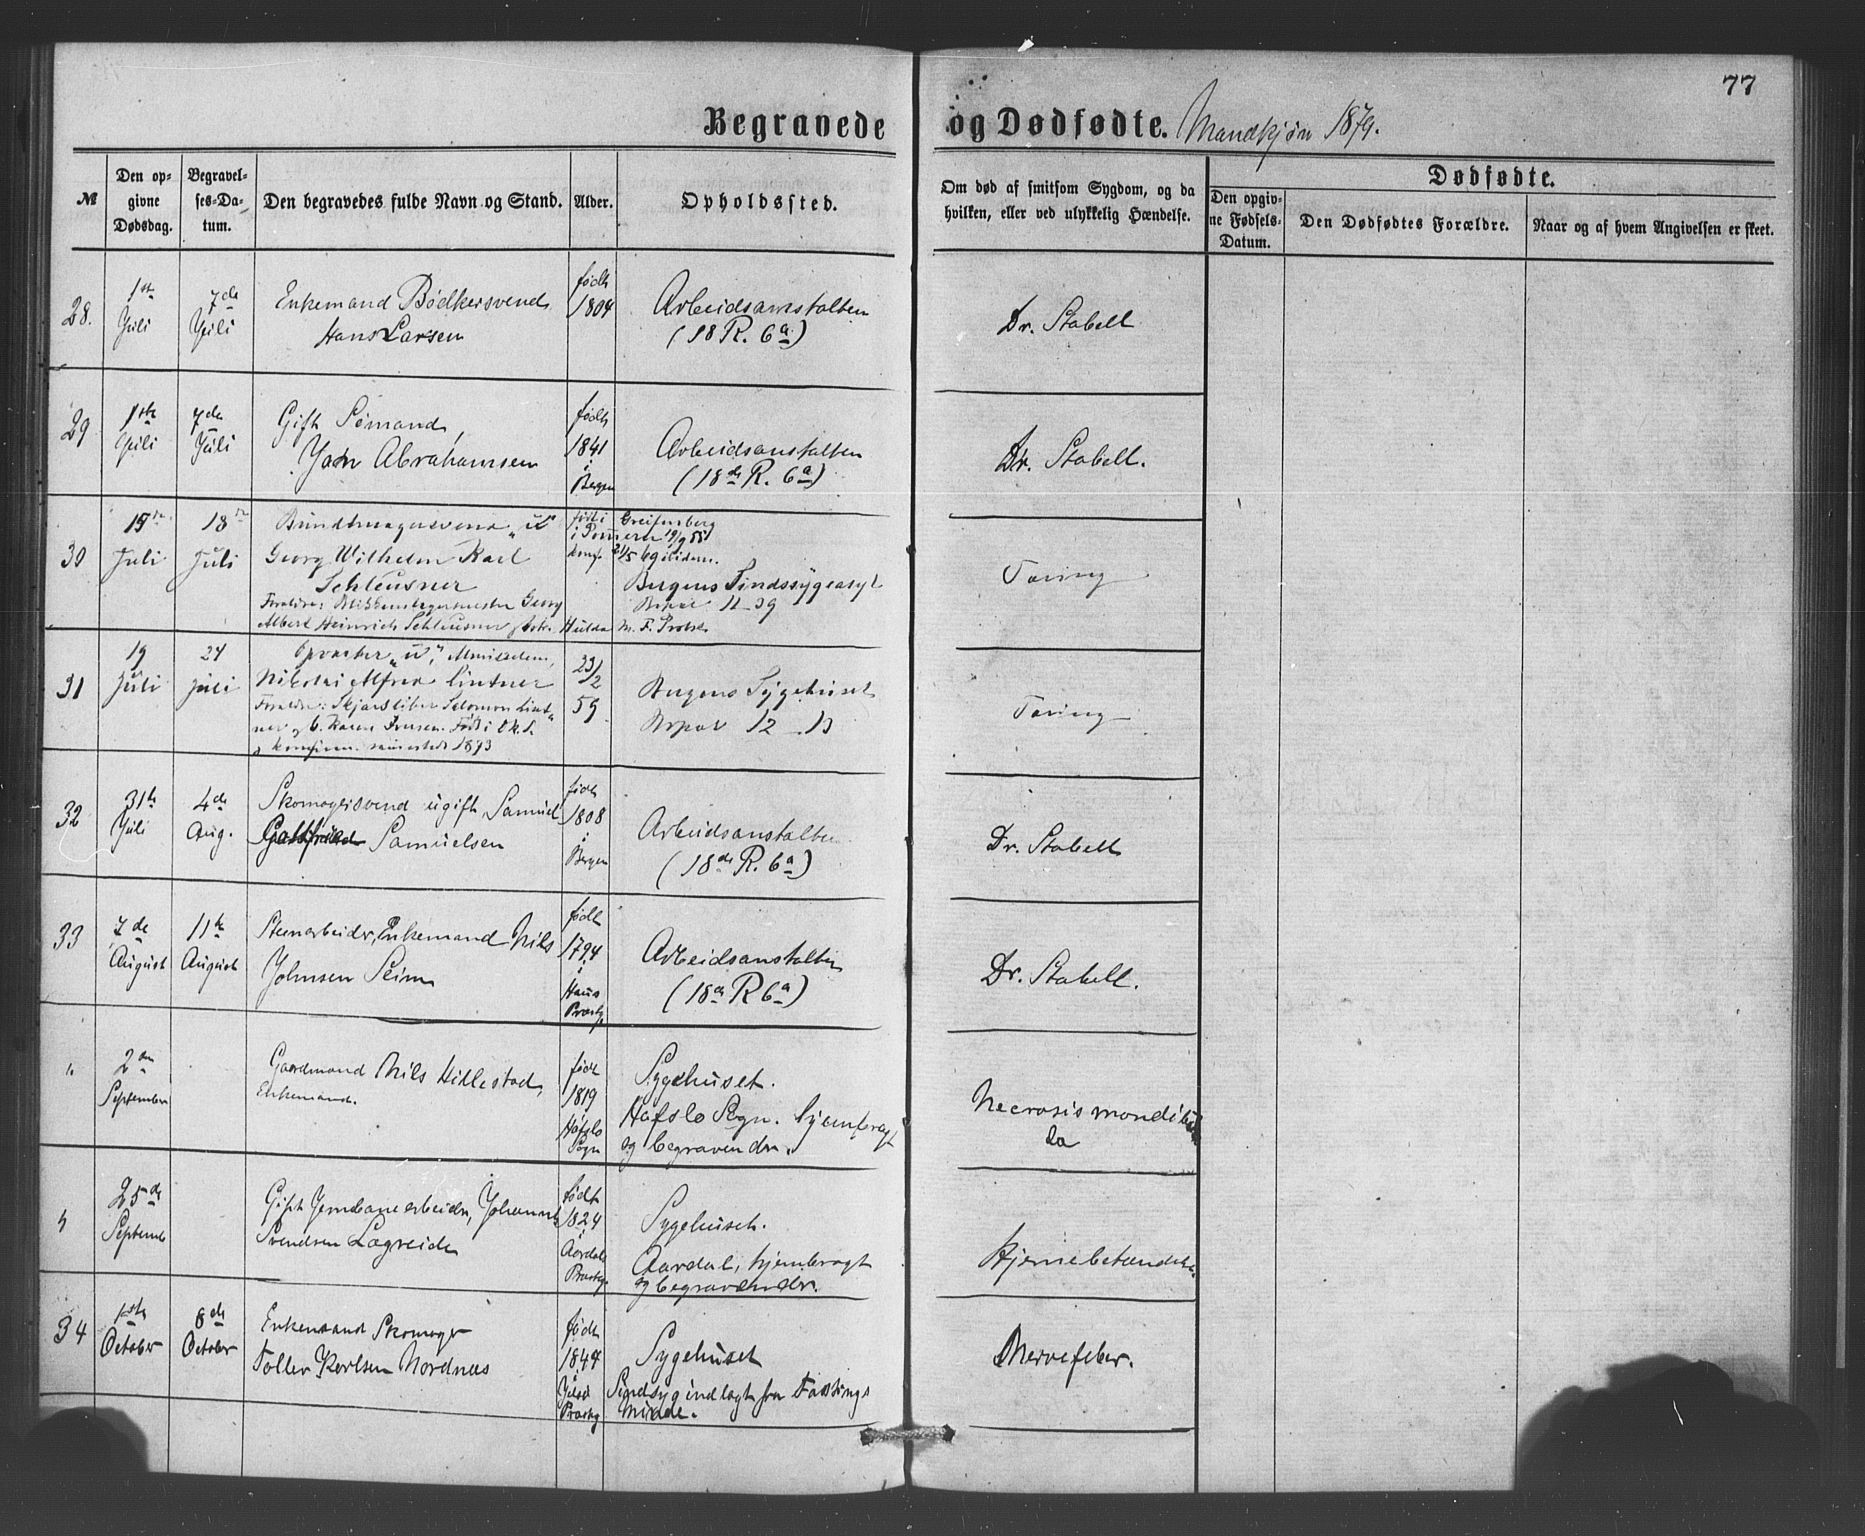 77
Begravede og Dødfødte. Mandkjøn 1879.
№
Den opgivne Dødsdag.
Begravelses-Datum.
Den begravedes fulde Navn og Stand.
Alder.
Opholdssted.
Om død af smitsom Sygdom, og da hvilken, eller ved ulykkelig Hændelse.
Dødfødte.
Den opgivne Fødsels-Datum.
Den Dødfødtes Forældre.
Naar og af hvem Angivelsen er skeet.
28.
1ste Juli
7de Juli
Enkemand Bødkersvend
Hans Larsen
født 1804
Arbeidsanstalten
(18 R. 6a)
Dr. Stabell
29
1ste Juli
7de Juli
Gift Sømand,
Jan Abrahamsen
født 1841 i Bergen
Arbeidsanstalten
(18de R. 6a)
Dr. Stabell.
30
15de Juli
18de Juli
Bundtmagersvend „u"
Georg Wilhelm Karl
Schleusner
Forældre: Blikkenslagermester Georg
Albert Heinrich Schleusner og Hulda M. F.
født i Greifenberg
i Pommern 19/9 55
Bergens Sindssygeasyl
11 39
Tæring
31
19 Juli
24 Juli
Opvarter „u",
Nikolai Alfred Lintner
Forældre: Solomon Lintner og Karen Iversen. Født i
og konfirm. sammesteds 1873
23/2 59
Bergens Sygehuset
12 13
Tæring
32
31te Juli
4de Aug.
Skomagersvend ugift, Samuel
Gottfried Samuelsen
født 1808 i Bergen
Arbeidsanstalten
(18de R. 6a)
Dr. Stabell
33
7de August
11te August
Stenarbeider, Enkemand Nils
Johnsen Seim
født 1794 i Haus Præstg.
Arbeidsanstalten
(18de R 6a)
Dr. Stabell.
"
2den September
Gaardmand Nils Hillestad,
Enkemand.
født 1819 Hafslo Sogn
Sygehuset.
Hafslo Sogn. hjembragt
og begraven der.
Necrosis mandibula
"
25de September
Gift Jernbanearbeider, Johannes
Svendsen Lægreid
født 1824 i Aardals Præstg.
Sygehuset.
Aardal, hjembragt
og begraven der.
Hjernebetændelse
34
1ste October
8de October
Enkemand Skomager
Toller Karlsen Nordnæs
født 1844 Præstg
Sygehuset
Sindsyg indlagt fra Fastings
Minde.
Nervefeber.